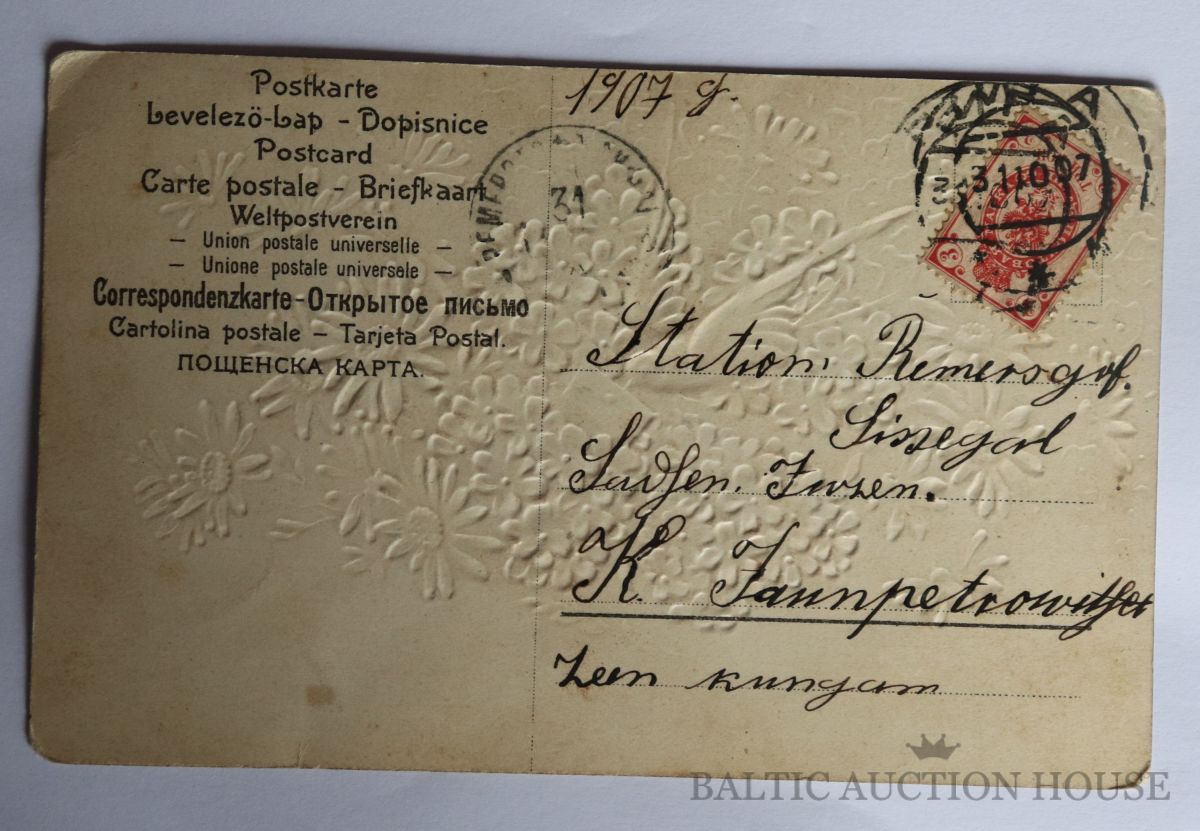 Postkarte
Levelező-Lap - Dopisnice
Postcard
Carte postale - Briefkaart
Weltpostverein
— Union postale universelle —
— Unione postale universale —
Correspondenzkarte-Открытое письмо
Cartolina postale - Tarjeta Postal.
ПОЩЕНСКА КАРТА.
1907 g.
31
31 10 07
3
Station. Remersgof.
Sissegal
K. Jaunpetrowitsch
Zeen kungam
BALTIC AUCTION HOUSE